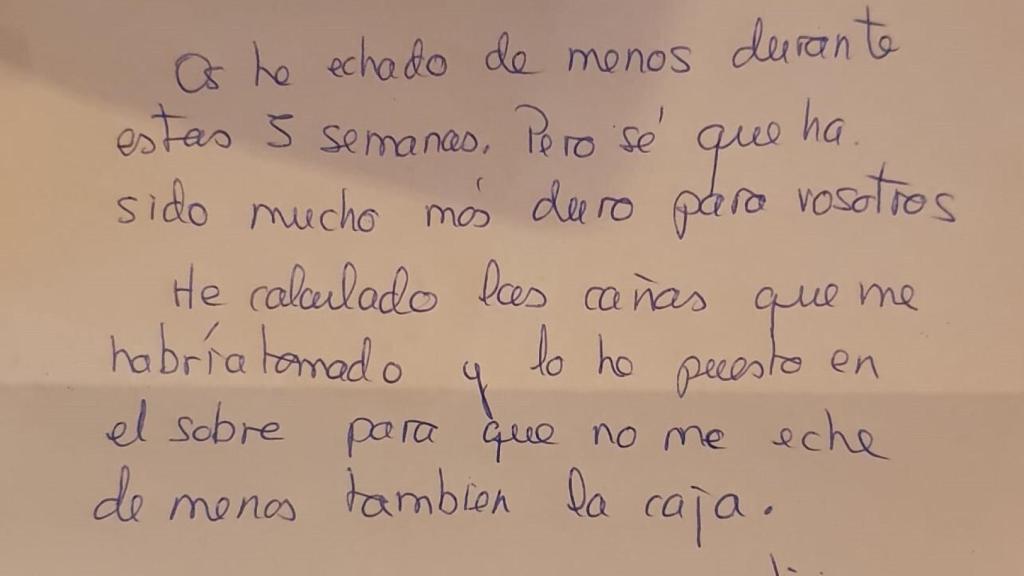 Os he echado de menos durante
estas 5 semanas. Pero sé que ha
sido mucho más duro para vosotros
He calculado las cañas que me
habría tomado y lo he puesto en
el sobre para que no me eche
de menos tambien la caja.